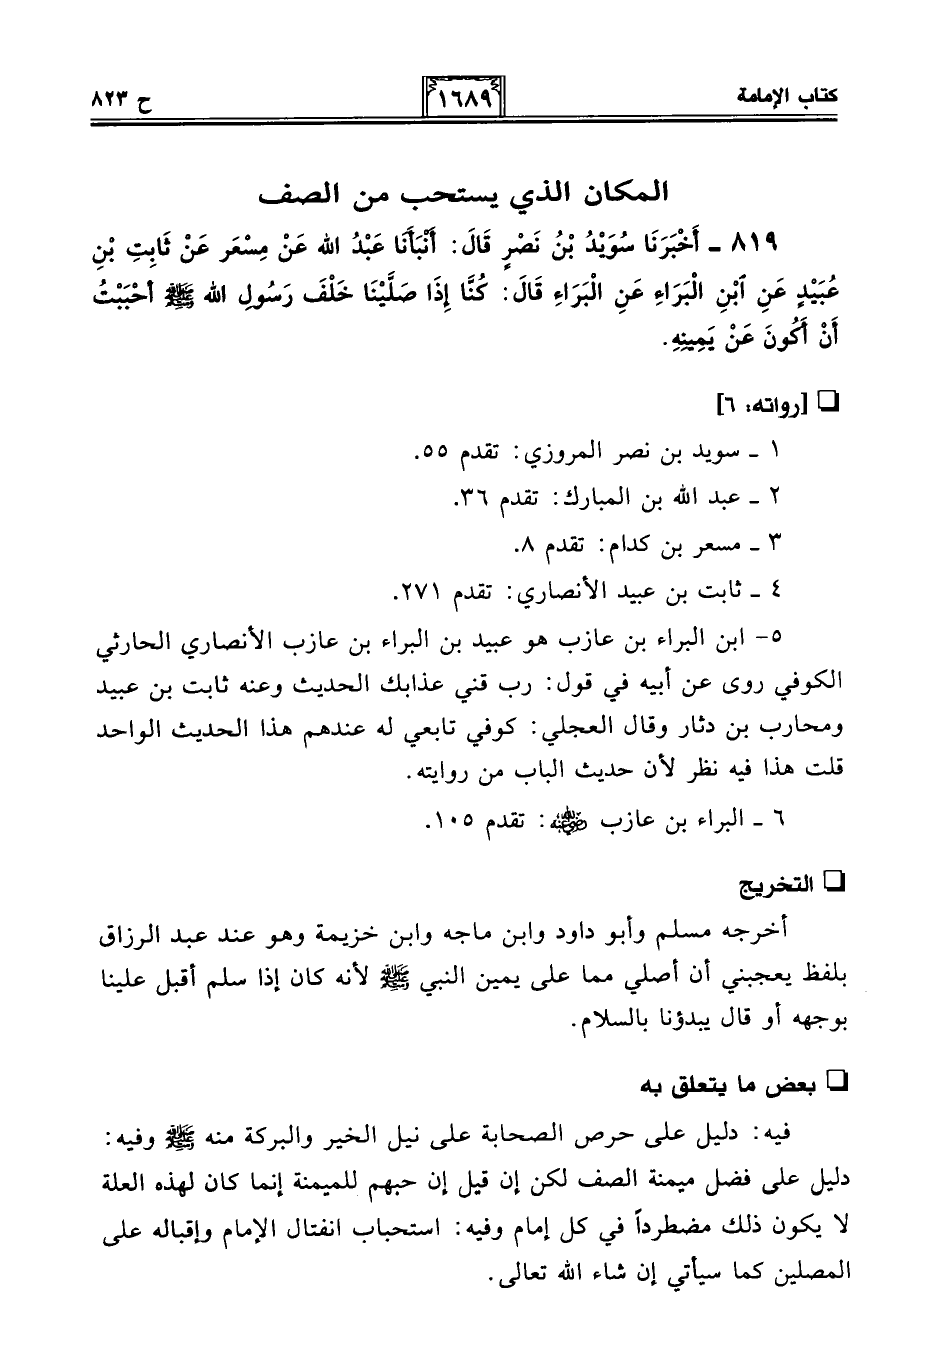 كتاب الإمامة ١٦٨٩ ح ٨٢٣
المكان الذي يستحب من الصف
٨١٩ ـ أَخْبَرَنَا سُوَيْدُ بْنُ نَصْرٍ قَالَ: أَنْبَأَنَا عَبْدُ الله عَنْ مِسْعَر عَنْ ثَابِتِ بْنِ
عُبَيْدٍ عَنِ ٱبْنِ الْبَرَاءِ عَنِ الْبَرَاءِ قَالَ: كُنَّا إِذَا صَلَّيْنَا خَلْفَ رَسُولِ الله ﷺ أَحْبَبْتُ
أَنْ أَكُونَ عَنْ يَمِينِهِ.
❏ [رواته: ٦]
١ ـ سويد بن نصر المروزي: تقدم ٥٥.
٢ ـ عبد الله بن المبارك: تقدم ٣٦.
٣ ـ مسعر بن كدام: تقدم ٨.
٤ ـ ثابت بن عبيد الأنصاري: تقدم ٢٧١.
٥- ابن البراء بن عازب هو عبيد بن البراء بن عازب الأنصاري الحارثي
الكوفي روى عن أبيه في قول: رب قني عذابك الحديث وعنه ثابت بن عبيد
ومحارب بن دثار وقال العجلي: كوفي تابعي له عندهم هذا الحديث الواحد
قلت هذا فيه نظر لأن حديث الباب من روايته.
٦ ـ البراء بن عازب رضي الله عنه: تقدم ١٠٥.
❏ التخريج
أخرجه مسلم وأبو داود وابن ماجه وابن خزيمة وهو عند عبد الرزاق
بلفظ يعجبني أن أصلي مما على يمين النبي ﷺ لأنه كان إذا سلم أقبل علينا
بوجهه أو قال يبدؤنا بالسلام.
❏ بعض ما يتعلق به
فيه: دليل على حرص الصحابة على نيل الخير والبركة منه ﷺ وفيه:
دليل على فضل ميمنة الصف لكن إن قيل إن حبهم للميمنة إنما كان لهذه العلة
لا يكون ذلك مضطرداً في كل إمام وفيه: استحباب انفتال الإمام وإقباله على
المصلين كما سيأتي إن شاء الله تعالى.